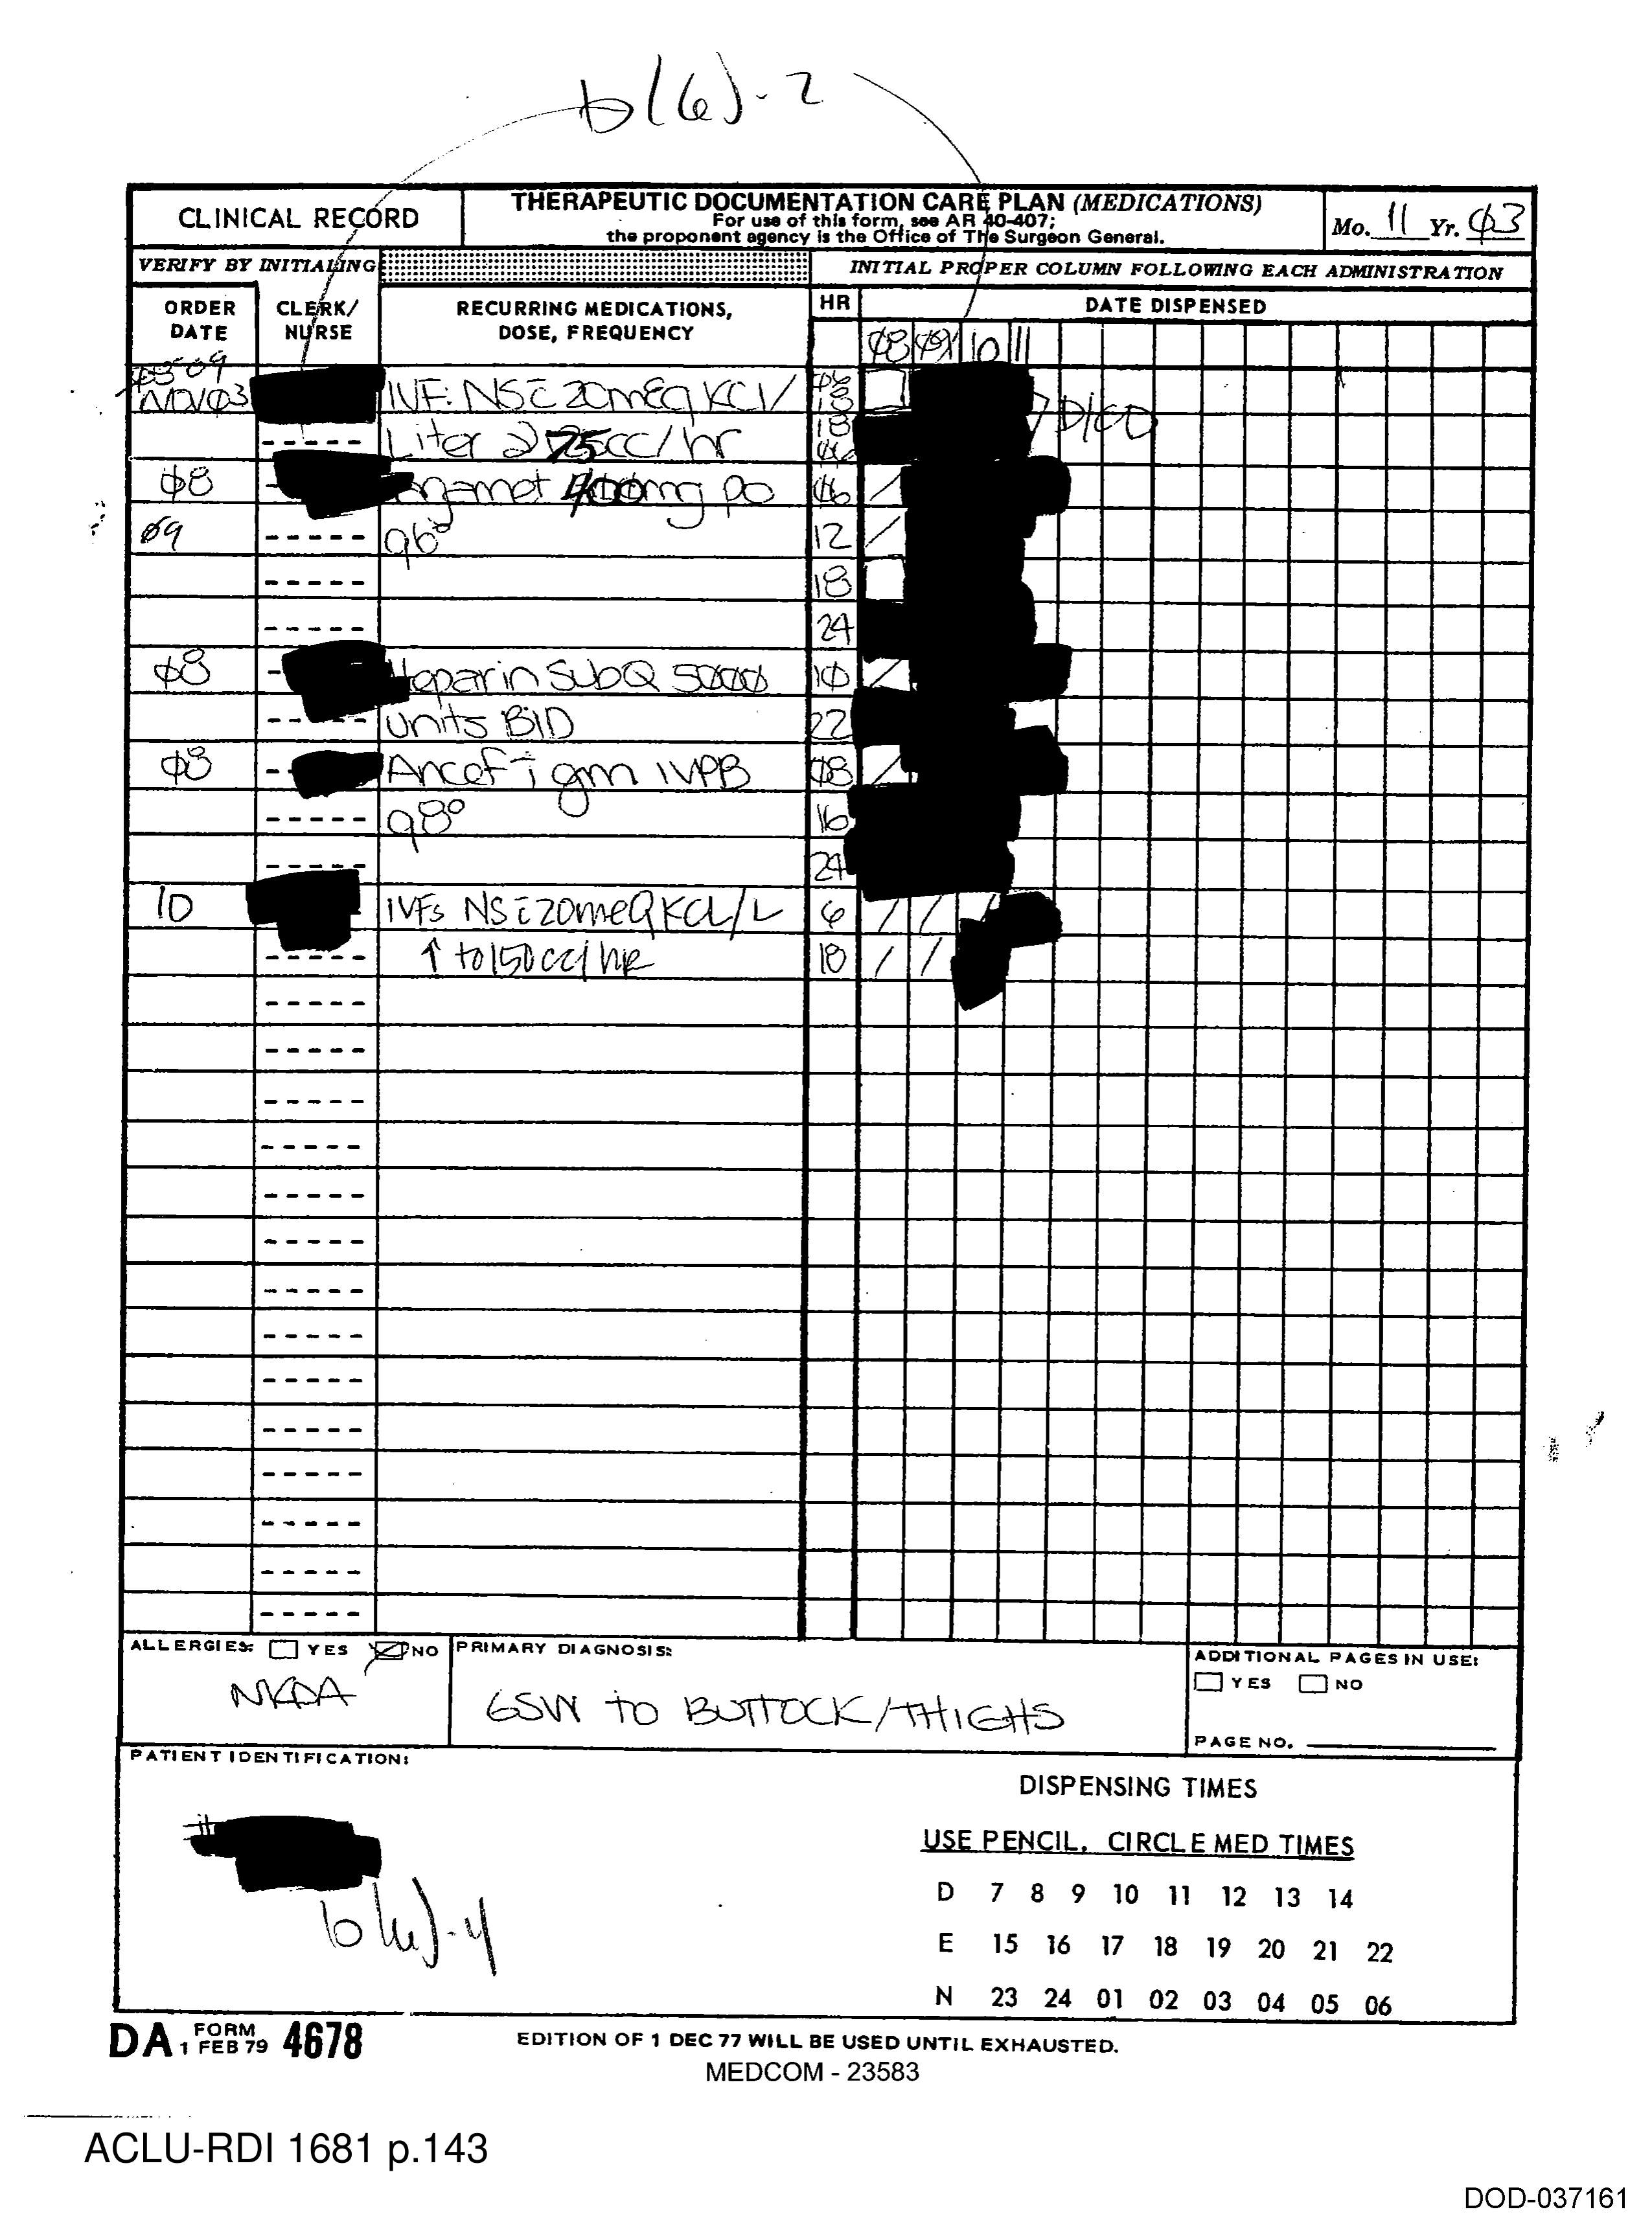 b(6)-2
CLINICAL RECORD
THERAPEUTIC DOCUMENTATION CARE PLAN (MEDICATIONS)
For use of this form, see AR 40-407;
the proponent agency is the Office of The Surgeon General.
Mo. 11 Yr. 03
VERIFY BY INITIALING
INITIAL PROPER COLUMN FOLLOWING EACH ADMINISTRATION
ORDER DATE
CLERK/ NURSE
RECURRING MEDICATIONS, DOSE, FREQUENCY
HR
DATE DISPENSED
08 09 10 11
09
NOV03 IVF: NS c̄ 20mEq KCl/ 06 18
Liter @ 75cc/hr 18 D/C'D
08 mg po 06
09 q6° 12
18
24
08 Heparin SubQ 5000 10
units BID 22
08 Ancef i gm IVPB 08
q8° 16
24
10 IVFs NS c̄ 20meQ KCL/L 6
↑ to 150cc/hr 18
ALLERGIES: YES NO
NKDA
PRIMARY DIAGNOSIS:
GSW TO BUTTOCK/THIGHS
ADDITIONAL PAGES IN USE:
YES NO
PAGE NO.
PATIENT IDENTIFICATION:
#
b(6)-4
DISPENSING TIMES
USE PENCIL. CIRCLE MED TIMES
D 7 8 9 10 11 12 13 14
E 15 16 17 18 19 20 21 22
N 23 24 01 02 03 04 05 06
DA FORM 4678
1 FEB 79
EDITION OF 1 DEC 77 WILL BE USED UNTIL EXHAUSTED.
MEDCOM - 23583
ACLU-RDI 1681 p.143
DOD-037161